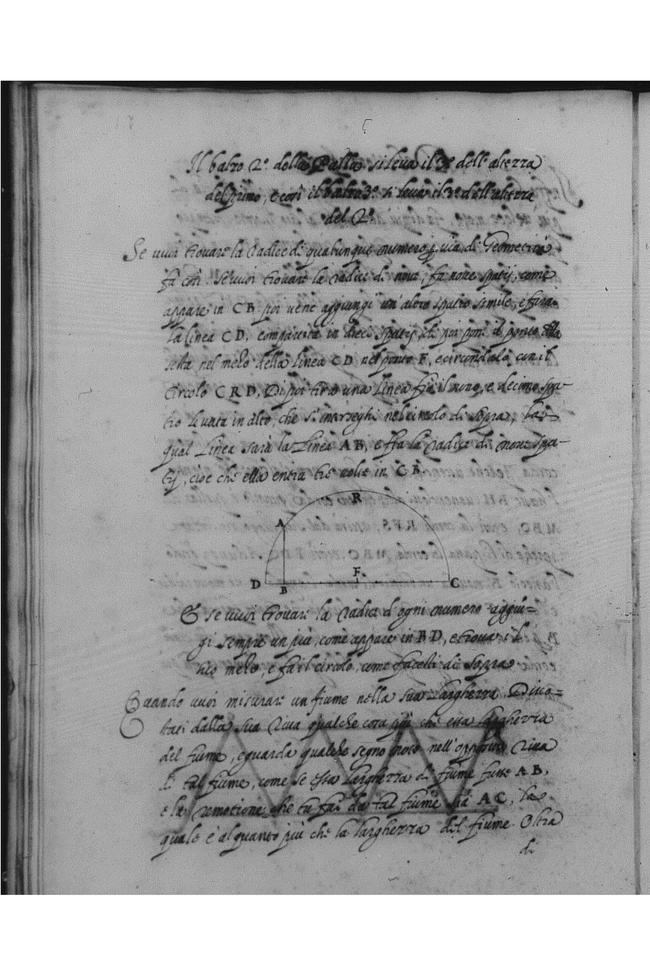 Il balzo 2.º della Palla si leva il 3.º dell'altezza
del primo, e così il balzo 3.º si leva il 3.º dell'altezza
del 2.º
Se vuoi trouar la radice di qualunque numero p via di Geometria
fa così. Se vuoi trouare la radice di noue, fa noue spatij, come
appare in CB poi ui ne aggiungi un'altro spatio simile, e fina
la linea CD, compartita in dieci spatij, di poi poni il punto della
sesta nel mezo della linea CD nel punto F, e circundala con il
Circolo CRD. Di poi tira una Linea fra il nono, e decimo spa-
tio leuata in alto, che s'interseghi nel circolo di sopra, la
qual Linea sarà la Linea AB, e fia la radice di noue spa-
tij, cioe che ella entra tre volte in CB.
R
A
F
D
B
C
E se vuoi trouar la radice d'ogni numero aggiu-
gi sempre un piu, come appare in BD, e troua il
suo mezo, e fa il circolo, come facesti di sopra
Quando vuoi misurare un fiume nella sua larghezza. Disco-
stati dalla sua riua qualche cosa piu che essa larghezza
del fiume, e guarda qualche segno noto nell'opposita riua
di tal fiume, come se essa larghezza di fiume fusse AB,
e la remotione che tu fai da tal fiume sia AC, la
quale è alquanto più che la larghezza del fiume. Oltra
di